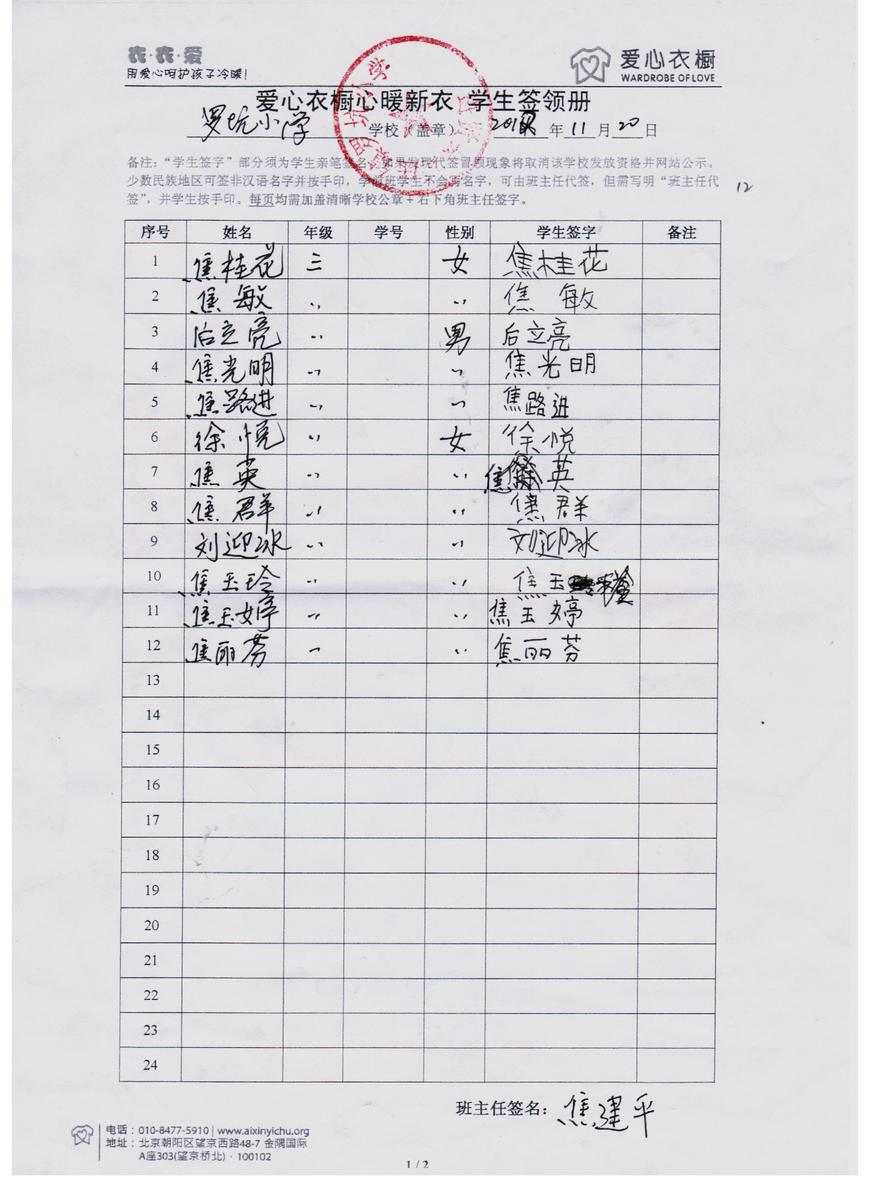 衣·衣·爱
用爱心呵护孩子冷暖!
爱心衣橱
WARDROBE OF LOVE
爱心衣橱心暖新衣 学生签领册
罗坑小学 学校(盖章) 年 11 月 20 日
备注:“学生签字”部分须为学生亲笔签名,如果发现代签冒领现象将取消该学校发放资格并网站公示。
少数民族地区可签非汉语名字并按手印,学前班学生不会写名字,可由班主任代签,但需写明“班主任代
签”,并学生按手印。每页均需加盖清晰学校公章+右下角班主任签字。
12
序号 姓名 年级 学号 性别 学生签字 备注
1 焦桂花 三 女 焦桂花
2 焦敏 〃 〃 焦敏
3 后立亮 〃 男 后立亮
4 焦光明 〃 〃 焦光明
5 焦路进 〃 〃 焦路进
6 徐悦 〃 女 徐悦
7 焦英 〃 〃 焦英
8 焦群 〃 〃 焦群
9 刘迎冰 〃 〃 刘迎冰
10 焦玉玲 〃 〃 焦玉
11 焦玉婷 〃 〃 焦玉婷
12 焦丽芬 〃 〃 焦丽芬
13
14
15
16
17
18
19
20
21
22
23
24
班主任签名: 焦建平
电话:010-8477-5910 | www.aixinyichu.org
地址:北京朝阳区望京西路48-7 金隅国际
A座303(望京桥北)·100102
1 / 2